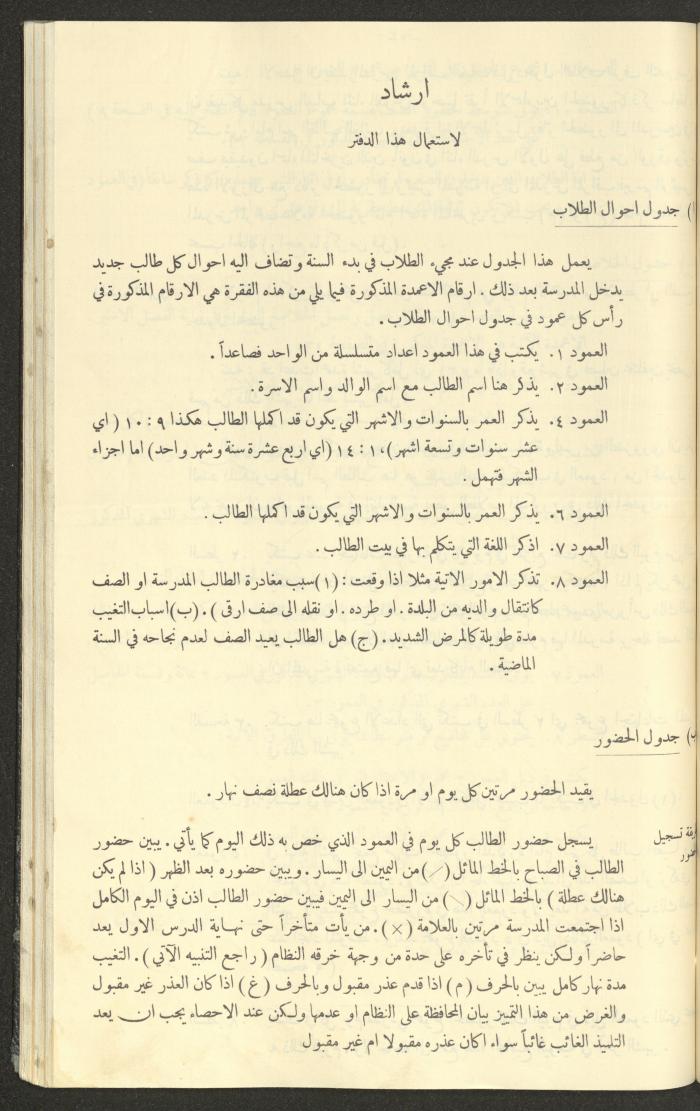 ارشاد
لاستعمال هذا الدفتر
١) جدول احوال الطلاب
يعمل هذا الجدول عند مجيء الطلاب في بدء السنة وتضاف اليه احوال كل طالب جديد
يدخل المدرسة بعد ذلك . ارقام الاعمدة المذكورة فيما يلي من هذه الفقرة هي الارقام المذكورة في
رأس كل عمود في جدول احوال الطلاب .
العمود ١. يكتب في هذا العمود اعداد متسلسلة من الواحد فصاعداً .
العمود ٢. يذكر هنا اسم الطالب مع اسم الوالد واسم الاسرة .
العمود ٤. يذكر العمر بالسنوات والاشهر التي يكون قد اكملها الطالب هكذا ٩ : ١٠ ( اي
عشر سنوات وتسعة اشهر) ، ١ : ١٤ (اي اربع عشرة سنة وشهر واحد) اما اجزاء
الشهر فتهمل .
العمود ٦. يذكر العمر بالسنوات والاشهر التي يكون قد اكملها الطالب .
العمود ٧. اذكر اللغة التي يتكلم بها في بيت الطالب .
العمود ٨. تذكر الامور الاتية مثلا اذا وقعت : (١) سبب مغادرة الطالب المدرسة او الصف
كانتقال والديه من البلدة . او طرده . او نقله الى صف ارقى ) . (ب) اسباب التغيب
مدة طويلة كالمرض الشديد . (ج) هل الطالب يعيد الصف لعدم نجاحه في السنة
الماضية .
٢) جدول الحضور
يقيد الحضور مرتين كل يوم او مرة اذا كان هنالك عطلة نصف نهار .
تسجيل
يسجل حضور الطالب كل يوم في العمود الذي خص به ذلك اليوم كما يأتي . يبين حضور
الطالب في الصباح بالخط المائل (/) من اليمين الى اليسار . ويبين حضوره بعد الظهر ( اذا لم يكن
هنالك عطلة ) بالخط المائل (\) من اليسار الى اليمين فيبين حضور الطالب اذن في اليوم الكامل
اذا اجتمعت المدرسة مرتين بالعلامة (×) . من يأت متأخراً حتى نهاية الدرس الاول يعد
حاضراً ولكن ينظر في تأخره على حدة من وجهة خرقه النظام ( راجع التنبيه الآتي ) . التغيب
مدة نهار كامل يبين بالحرف ( م ) اذا قدم عذر مقبول وبالحرف ( غ ) اذا كان العذر غير مقبول
والغرض من هذا التمييز بيان المحافظة على النظام او عدمها ولكن عند الاحصاء يجب ان يعد
التلميذ الغائب غائباً سواء اكان عذره مقبولا ام غير مقبول